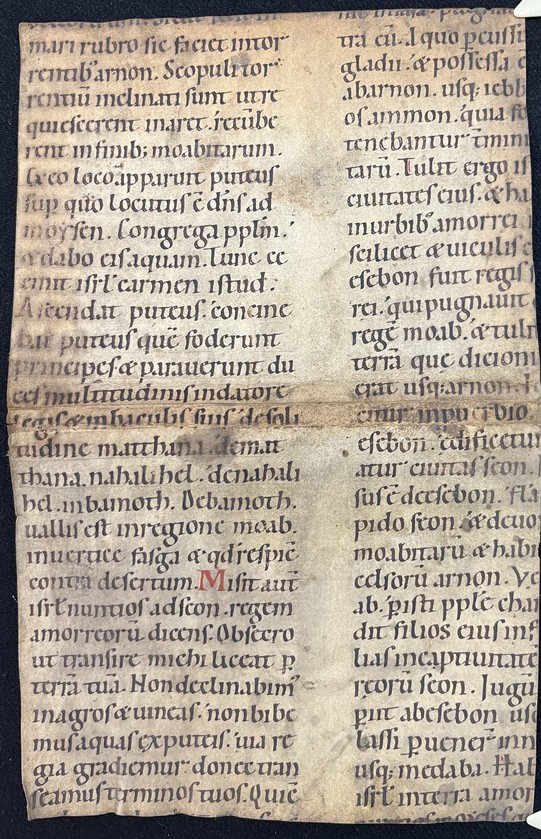 mari rubro sic faciet in tor
rentib; arnon. Scopuli tor
rentiū inclinati sunt ut re
quiescerent in aret. recūbe
rent in finib; moabitarum.
Ex eo loco apparuit puteus
sup quo locutus ē dn̄s ad
moysen. Congrega pplm̄.
& dabo eis aquam. Tunc ce
cinit isrł carmen istud.
Ascendat puteus. concine
bat puteus quē foderunt
principes & parauerunt du
ces multitudinis in datore
legis & in baculis suis. de soli
tudine matthana. de mat
thana. nahalihel. de nahali
hel. in bamoth. De bamoth.
uallis est in regione moab.
in uertice fasga & qd̄ respic̄
contra desertum. Misit aut̄
isrł nuntios ad seon. regem
amorreorū dicens. Obsecro
ut transire michi liceat p̱
terrā tuā. Non declinabim᷒
in agros & uineas. non bibe
mus aquas ex puteis. uia re
gia gradiemur donec tran
seamus terminos tuos. Qui c̄
tra cū. A quo p̱cussu
gladii. & possessa e
ab arnon. usq; iebb
os ammon. quia fo
tenebantur t̄mini
tarū. Tulit ergo is
ciuitates eius. & ha
in urbib; amorrei.
scilicet & uiculis e
esebon fuit regis
rei. qui pugnauit
regē moab. & tulit
terrā que dicioni
erat usq; arnon. I
citur in pro
esebon. edificetur
atur ciuitas seon.
sus ē de esebon. fla
pido seon. & deuo
moabitarū & habi
celsorū arnon. Ve
ab. p̱isti pple cha
dit filios eius in f
lias in captiuitatē
reorū seon. Iugū
p̱iit ab esebon us
lassi p̱uener̄ in n
usq; medaba. Hab
isrł in terra amor